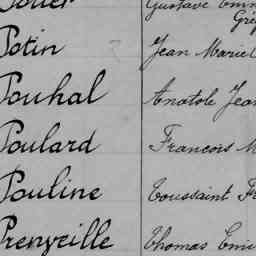 Potin Jean Marie
Pouhal Anatole Jean
Poulard Francois M
Pouline Toussaint Fr
Prenveille Thomas Emi